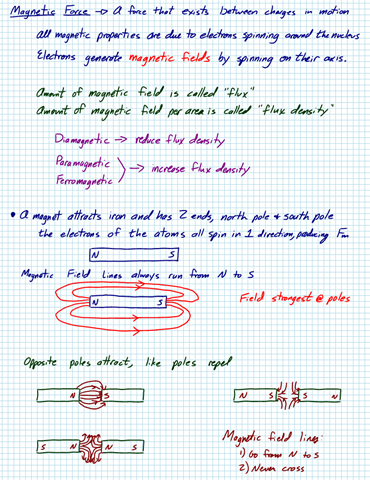 Magnetic Force → A force that exists between charges in motion
All magnetic properties are due to electrons spinning around the nucleus
Electrons generate magnetic fields by spinning on their axis.
Amount of magnetic field is called "flux"
Amount of magnetic field per area is called "flux density"
Diamagnetic → reduce flux density
Paramagnetic
Ferromagnetic → increase flux density
• A magnet attracts iron and has 2 ends, north pole & south pole
the electrons of the atoms all spin in 1 direction, producing Fm
N S
Magnetic Field Lines always run from N to S
N S
Field strongest @ poles
Opposite poles attract, like poles repel
N S
N S S N
S N N S
Magnetic field lines:
1) Go from N to S
2) Never cross